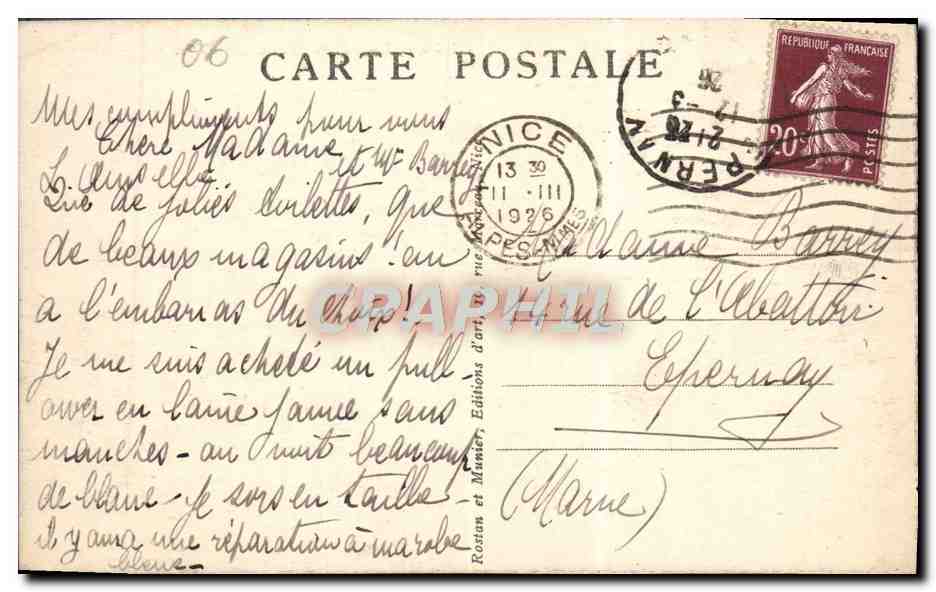 06
CARTE POSTALE
Mes compliments pour vous
et Mr Barrey
Chère Madame
Que de jolies toilettes, que
de beaux magasins ! on
a l'embarras du choix !
Je me suis acheté un pull-
over en laine jaune sans
manches - on voit beaucoup
de blanc - Je sors en taille -
il y aura une réparation à ma robe
bleue -
Rostan et Munier, Editions d'art, rue Nice
NICE
13 30
11 - III
1926
ALPES-MMES
EPERNAY
21 20
12 - 3
26
REPUBLIQUE FRANÇAISE
20c
POSTES
Madame Barrey
rue de l'Abattoir
Epernay
(Marne)
CPAPHIL